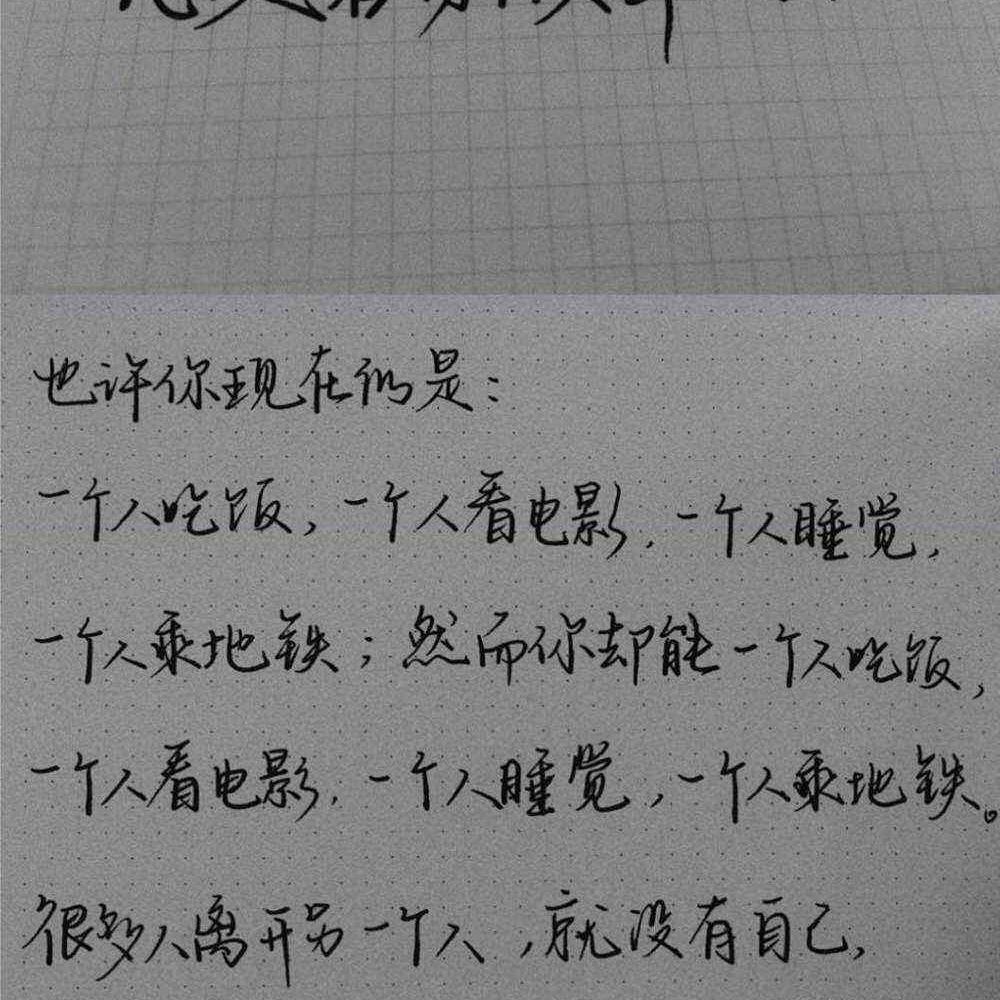 也许你现在仍是：
一个人吃饭，一个人看电影，一个人睡觉，
一个人乘地铁；然而你却能一个人吃饭，
一个人看电影，一个人睡觉，一个人乘地铁。
很多人离开另一个人，就没有自己，